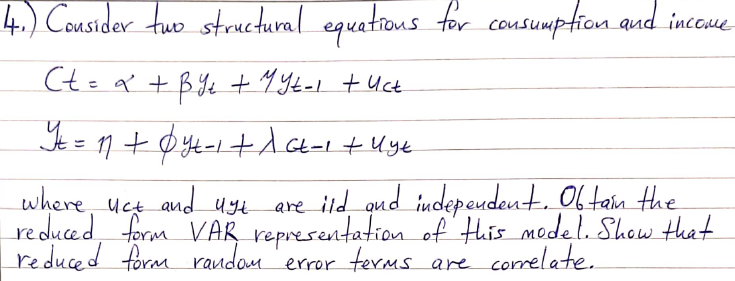 4.) Consider two structural equations for consumption and income
Ct = α + βyt + γyt-1 + uct
yt = η + ϕyt-1 + λct-1 + uyt
where uct and uyt are iid and independent. Obtain the
reduced form VAR representation of this model. Show that
reduced form random error terms are correlate.